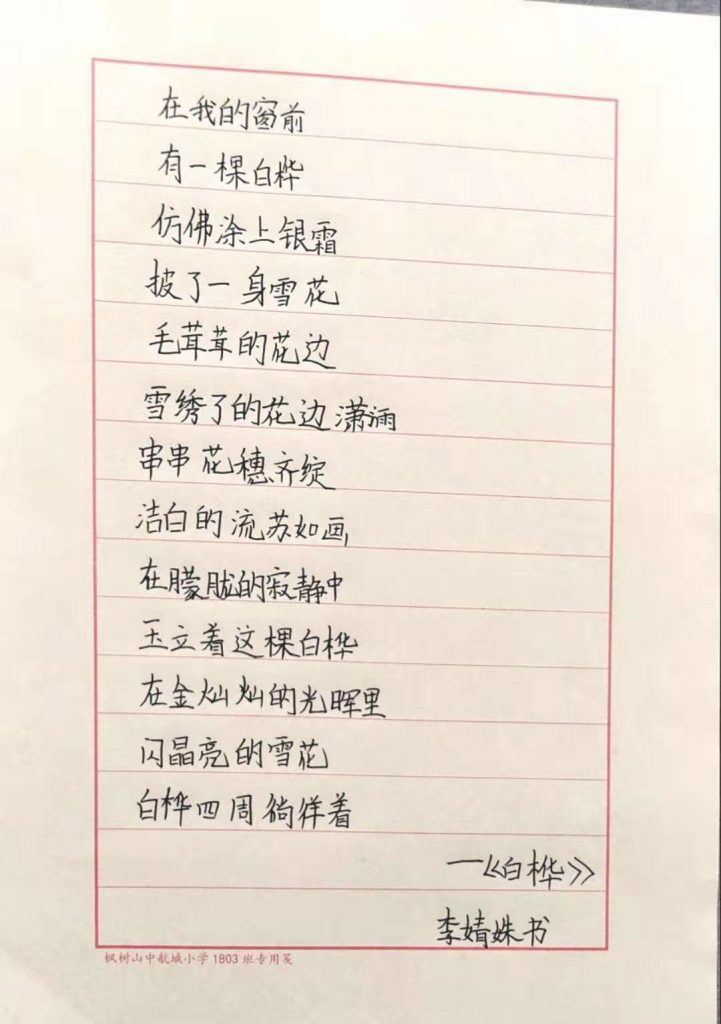 在我的窗前
有一棵白桦
仿佛涂上银霜
披了一身雪花
毛茸茸的花边
雪绣了的花边潇洒
串串花穗齐绽
洁白的流苏如画
在朦胧的寂静中
玉立着这棵白桦
在金灿灿的光晖里
闪晶亮的雪花
白桦四周徜徉着
—《白桦》
李婧姝书
枫树山中航城小学1803班专用笺